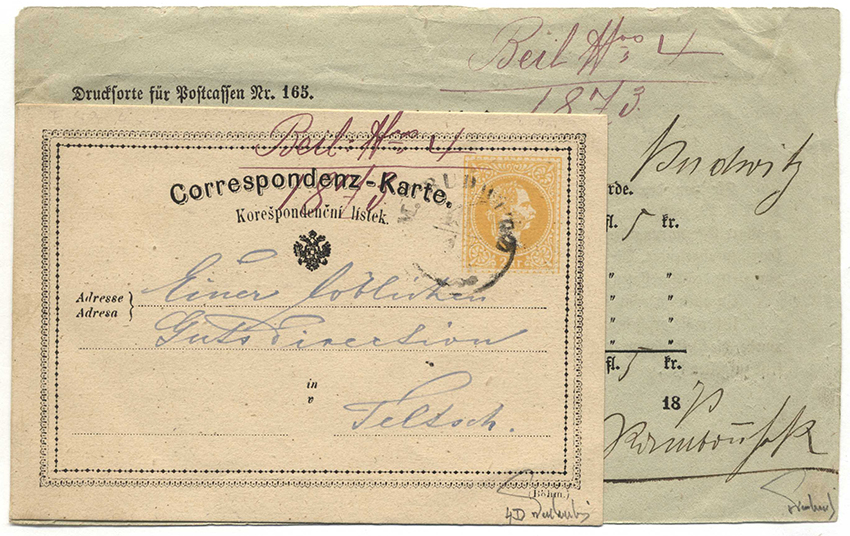 Beil Nro 4
1873.
Druckſorte für Poſtcaſſen Nr. 165.
Pudwitz
rde.
fl. 5 kr.
" "
" "
" "
" "
fl. 5 kr.
18
Beil: Nro 4
1873
Correspondenz-Karte.
Korešpondenční lístek.
2 KR.
Adresse
Adresa
Einer löblichen
Gutsdirection
in
v
Teltsch.
(Böhm.)